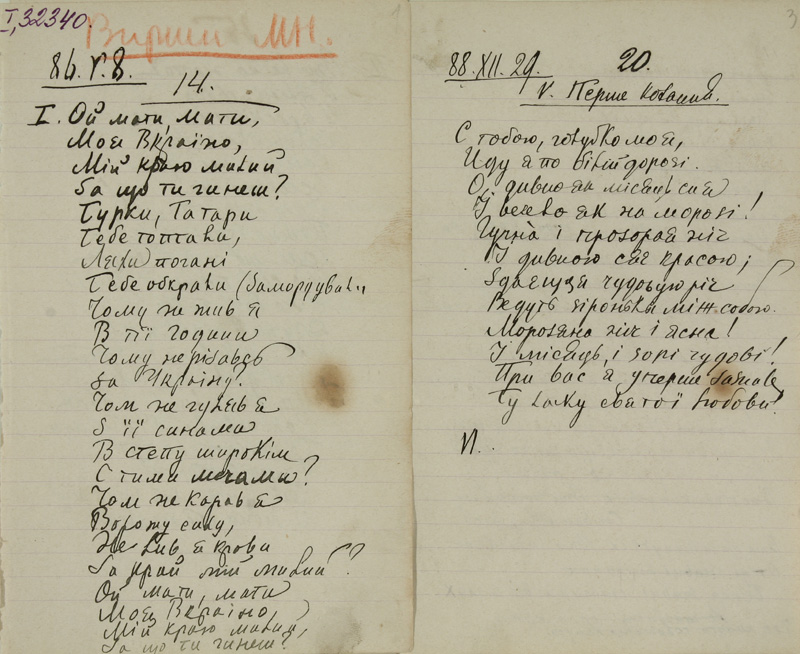 I, 32340.
Вирши МН.
86. V. 8.
14.
I. Ой мати, мати,
Моя Вкраіно,
Мій краю милий
За що ти гинеш?
Турки, Татари
Тебе топтали,
Ляхи погані
Тебе обкрали (замордували
Чому не жив я
В тії години
Чому не різавсь
За Украіну?
Чом не гуляв я
З її синами
В степу широкім
С тими мечами?
Чом не карав я
Ворожу силу,
Не лив я крови
За край мій милий?
Ой мати, мати
Моя Вкраіно,
Мій краю милий,
За що ти гинеш?
3
88. XII. 29.
20.
V. Перше коханнє.
С тобою, голубко моя,
Иду я по білій дорозі.
О, дивно як місяць сия
І весело як на морозі!
Гучна і прозорая ніч
І дивною сяє красою;
Здаєцця чудовую річ
Ведуть зіроньки між собою.
Морозяна ніч і ясна!
І місяць, і зорі чудові!
При вас я уперше зазнав
Ту ласку святої любови!
И.